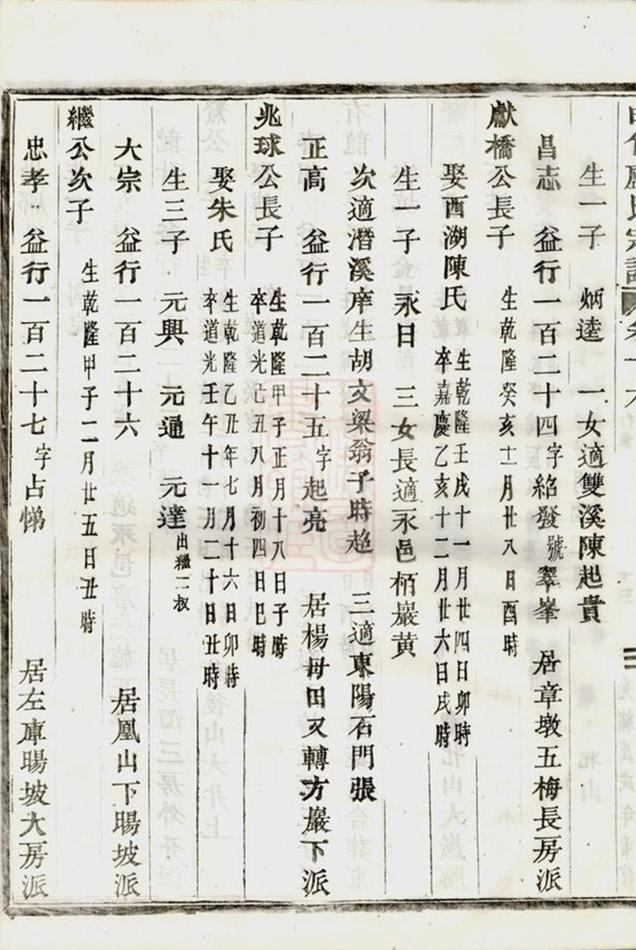 生一子 炳逵 一女適雙溪陳起貴
昌志 益行一百二十四字紹發號翠峯 居章墩五梅長房派
獻橋公長子 生乾隆癸亥十一月廿八日酉時
娶西湖陳氏 生乾隆壬戌十一月廿四日卯時
卒嘉慶乙亥十二月廿六日戌時
生一子 永日 三女長適永邑栢巖黃
次適潛溪庠生胡文梁翁子時趂 三適東陽石門張
正高 益行一百二十五字起亮 居楊母田又轉方巖下派
兆球公長子 生乾隆甲子正月十八日子時
卒道光 五八月初四日巳時
娶朱氏 生乾隆乙丑年七月十六日卯時
卒道光壬午十一月二十日丑時
生三子 元興 元通 元達 出繼二叔
大宗 益行一百二十六 居凰山下暘坡派
繼公次子 生乾隆甲子二月廿五日丑時
忠孝 益行一百二十七字占悌 居左庫暘坡大房派